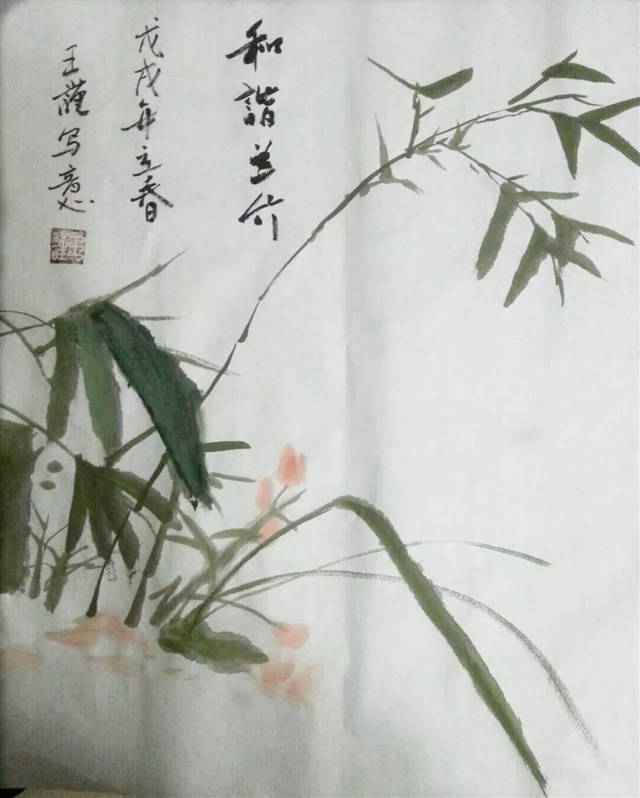 和諧兰竹
戊戌年立春
王写意